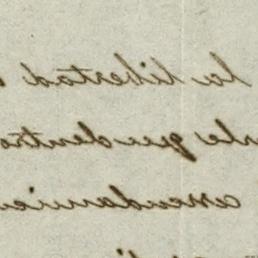 la libertad
que dentro
arrendamien